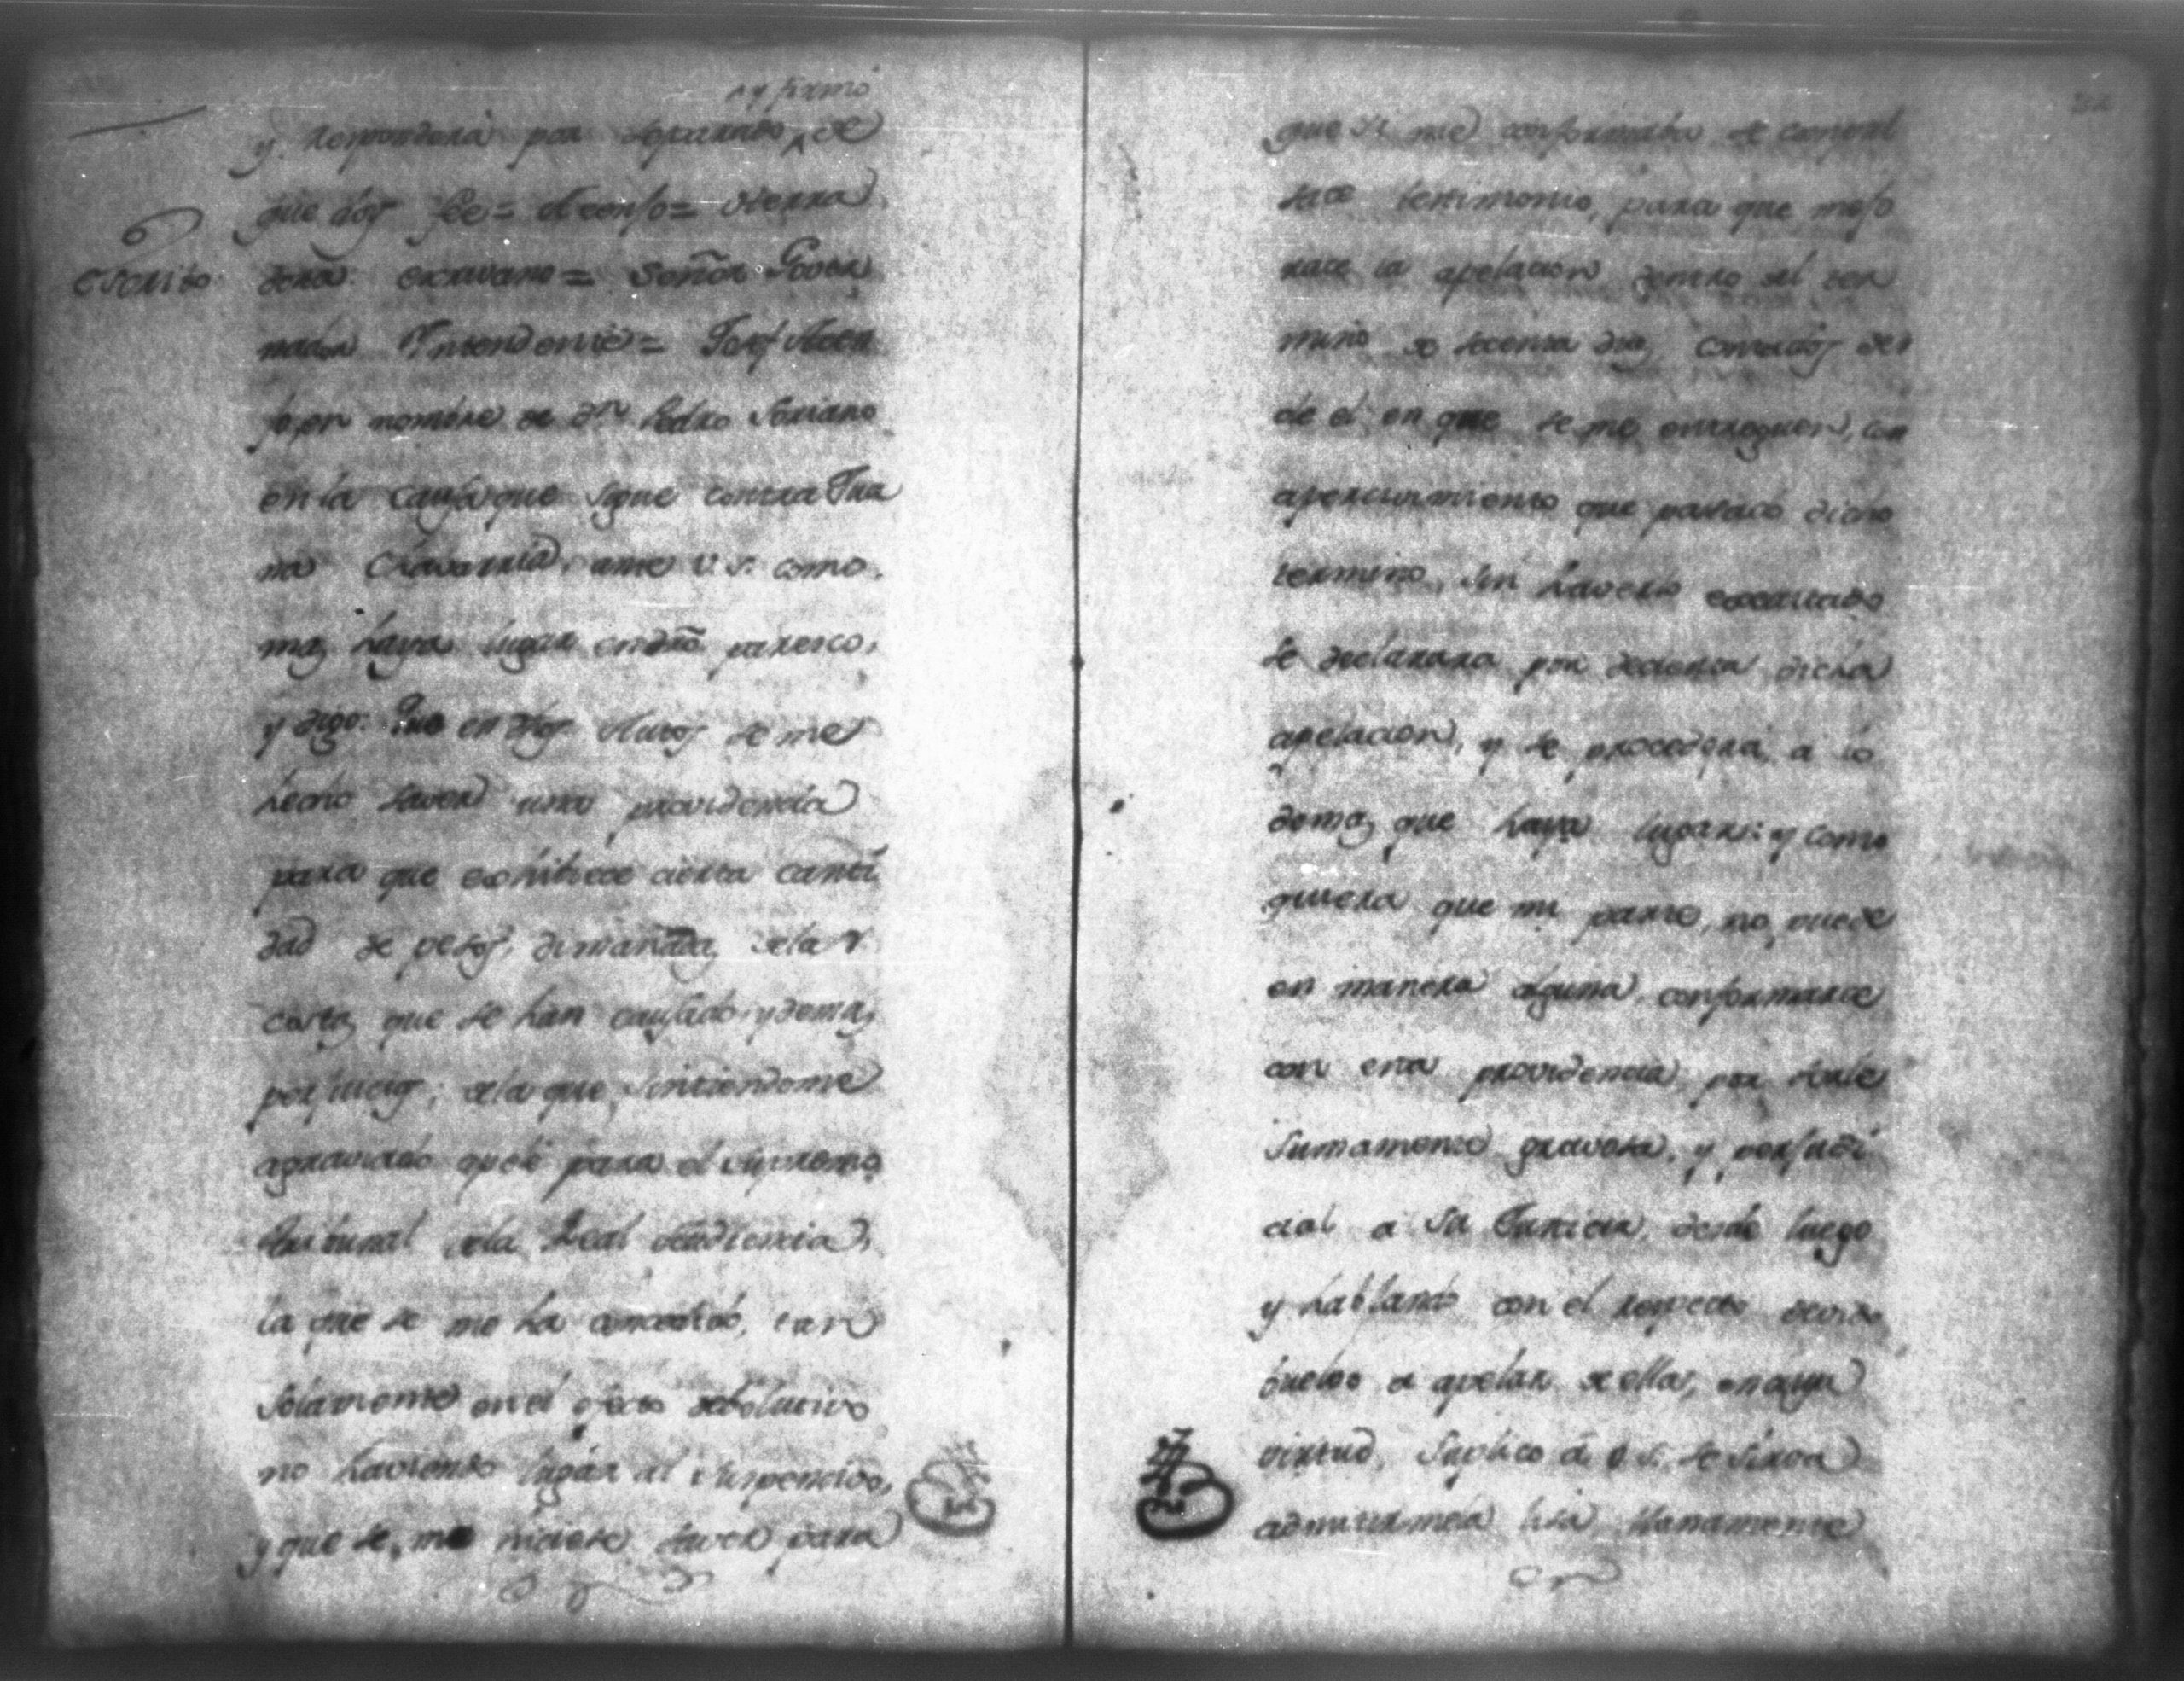 y firmó
y Responderá por separado, ^ de
que doy fee = Atenso = Vterra
Escrito
dená: escrivano = Señor Gover
nador Yntendente = Josef Aten
so, en nombre de Dn Pedro Soriano
en la causa que sigue contra Jua
na Chavarria, ante V.S. como
mas haya lugar en dro paresco,
y digo: Que en dhos Autos se me
hecho saver una providencia
para que exhibiece cierta canti
dad de pesos, dimanada, dela
costas que se han causado, y demas
perjuicios; dela que, sintiendome
agraviado apelé para el Supremo
tribunal dela Real Audiencia,
la que se me ha concedido, tan
solamente en el efecto debolutivo
no haviendo lugar al Suspencivo,
y que se me hiciese saver para
que si me conformaba se compul
sace testimonio, para que mejo
race la apelacion dentro del ter
mino de sesenta dias, contados des
de el en que se me entreguen, con
apercivimiento que pasado dicho
termino, sin haverlo executado
se declarara por decierta dicha
apelacion, y se procederá a lo
demas que haya lugar: y como
quiera que mi parte, no puede
en manera alguna conformarce
con esta providencia por serle
sumamente gravosa, y perjudi
cial a su Justicia, desde luego
y hablando con el respecto devido
buelbo a apelar de ella, en cuya
virtud, Suplico á V.S. se sirva
admitirmela lisa, llanamente